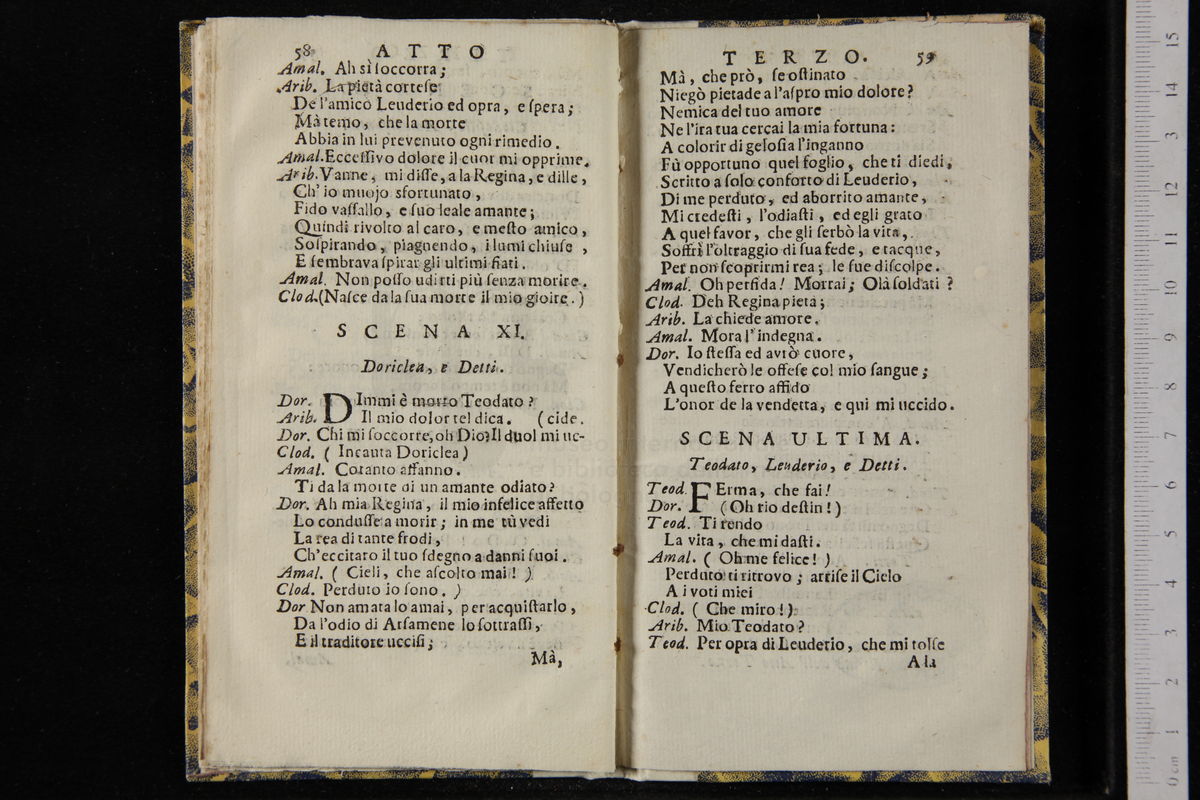 58 ATTO
Amal. Ah sì ſoccorra;
Arib. La pietà corteſe
De l'amico Leuderio ed opra, e ſpera;
Mà temo, che la morte
Abbia in lui prevenuto ogni rimedio.
Amal. Ecceſſivo dolore il cuor mi opprime.
Arib. Vanne, mi diſſe, a la Regina, e dille,
Ch' io muojo sfortunato,
Fido vaſſallo, e ſuo leale amante;
Quindi rivolto al caro, e meſto amico,
Soſpirando, piagnendo, i lumi chiuſe,
E ſembrava ſpirar gli ultimi fiati.
Amal. Non poſſo udirti più ſenza morire.
Clod. (Naſce da la ſua morte il mio gioire.)
SCENA XI.
Doriclea, e Detti.
Dor. DImmi è morto Teodato?
Arib. Il mio dolor tel dica. (cide.
Dor. Chi mi ſoccorre, oh Dio? Il duol mi uc-
Clod. ( Incauta Doriclea )
Amal. Cotanto affanno.
Ti da la morte di un amante odiato?
Dor. Ah mia Regina, il mio infelice affetto
Lo conduſſe a morir; in me tù vedi
La rea di tante frodi,
Ch'eccitaro il tuo ſdegno a danni ſuoi.
Amal. ( Cieli, che aſcolto mai! )
Clod. Perduto io ſono. )
Dor Non amata lo amai, per acquiſtarlo,
Da l'odio di Arſamene lo ſottraſſi,
E il traditore ucciſi;
Mà,
TERZO. 59
Mà, che prò, ſe oſtinato
Niegò pietade a l'aſpro mio dolore?
Nemica del tuo amore
Ne l'ira tua cercai la mia fortuna:
A colorir di geloſia l'inganno
Fù opportuno quel foglio, che ti diedi,
Scritto a ſolo conforto di Leuderio,
Di me perduto, ed aborrito amante,
Mi credeſti, l'odiaſti, ed egli grato
A quel favor, che gli ſerbò la vita,
Soffrì l'oltraggio di ſua fede, e tacque,
Per non ſcoprirmi rea; le ſue diſcolpe.
Amal. Oh perfida! Morrai; Olà ſoldati ?
Clod. Deh Regina pietà;
Arib. La chiede amore.
Amal. Mora l'indegna.
Dor. Io ſteſſa ed avrò cuore,
Vendicherò le offeſe col mio ſangue;
A queſto ferro affido
L'onor de la vendetta, e qui mi uccido.
SCENA ULTIMA.
Teodato, Leuderio, e Detti.
Teod. FErma, che fai!
Dor. (Oh rio deſtin!)
Teod. Ti rendo
La vita, che mi daſti.
Amal. ( Oh me felice! )
Perduto ti ritrovo; arriſe il Cielo
A i voti miei
Clod. ( Che miro!)
Arib. Mio Teodato?
Teod. Per opra di Leuderio, che mi tolſe
A la